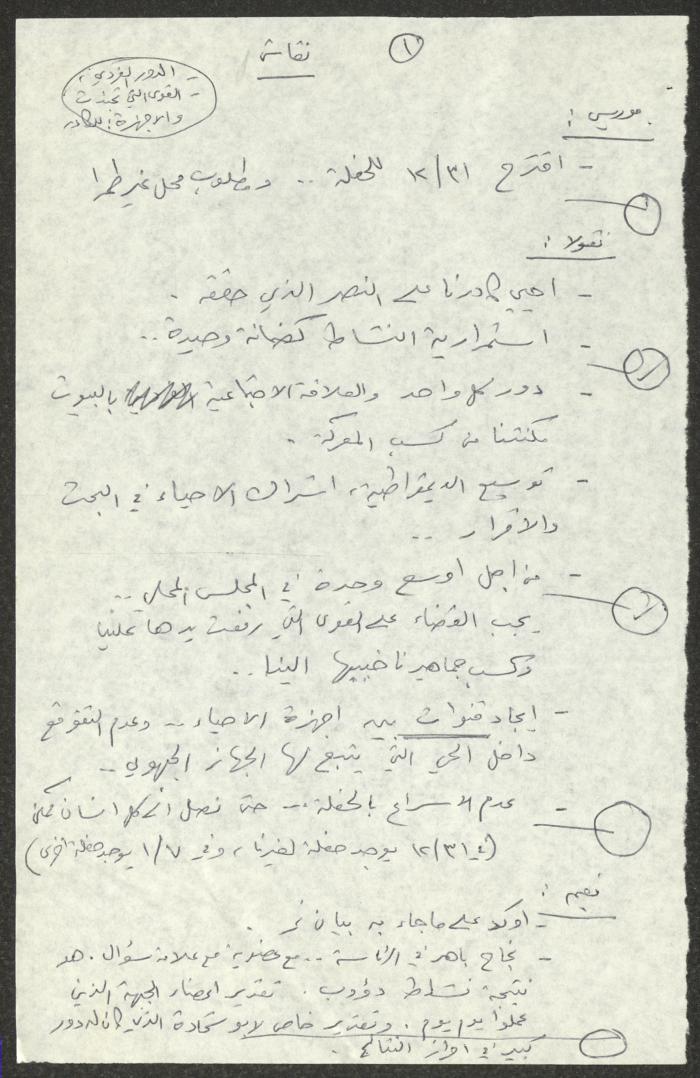 ١
نقاش
- الدور الفردي،
- القوى التي تجندت
والأجهزة؛ للكادر
موريس:
- اقترح ٣١/١٢ للحفلة .. ومطلوب محل غير طمرا
نقولا:
- احيي كادرنا على النصر الذي حققه.
- استمرارية النشاط كضمانة وحيدة..
- دور كل واحد والعلاقة الاجتماعية بالبيوت
مكنتنا من كسب المعركة.
- توسيع الديمقراطية، اشراك الاحياء في البحث
والاقرار ..
- من اجل اوسع وحدة في المجلس المحلي..
يجب القضاء على القوى التي رفعت يدها علينا
وكسب جماهير ناخبيها الينا..
- إيجاد قنوات بين اجهزة الاحياء .. وعدم التقوقع
داخل الحي التي يتبع لها الجهاز الجبهوي..
- عدم الاسراع بالحفلة... حتى نصل الى كل انسان ممكن
(في ٣١/١٢ يوجد حفلة لغيرنا، وفي ١/٧ يوجد حفلة اخرى)
نعيم:
- اؤكد على ما جاء به بيان
- نجاح باهر في الرئاسة .. مع عضوية مع علامة سؤال. هو
نتيجة نشاط دؤوب. تقدير اعضاء الجبهة الذين
عملوا يوم يوم. وتقدير خاص لابو شحادة الذي كان له دور
كبير في افراز النتائج.